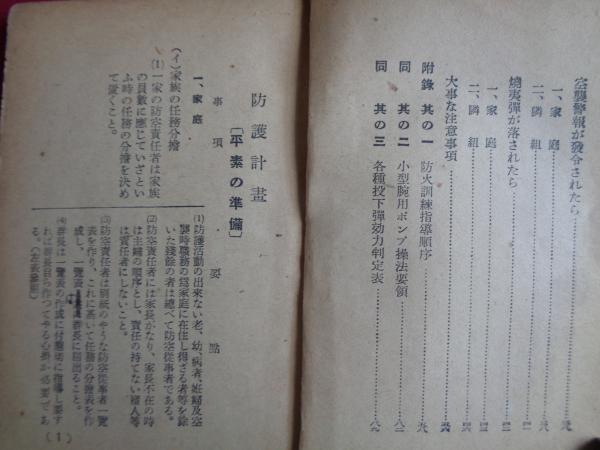 空襲警報が發令されたら
一、家庭
二、隣組
燒夷彈が落されたら
一、家庭
二、隣組
大事な注意事項
附錄 其の一 防火訓練指導順序
同 其の二 小型腕用ポンプ操法要領
同 其の三 各種投下彈効力判定表
防護計畫
〔平素の準備〕
事項
要點
一、家庭
(イ)家族の任務分擔
(1)一家の防空責任者は家族
の員數に應じていざとい
ふ時の任務の分擔を決め
て置くこと。
(1)防護活動の出來ない老、幼、病者、姙婦及空
襲時職務の爲家庭に在住し得ざる者等を除
いた殘餘の者は總べて防空從事者である。
(2)防空責任者には家長がなり、家長不在の時
は主婦の順序とし、責任の持てない婦人等
は責任者にしないこと。
(3)防空責任者は別紙のやうな防空從事者一覽
表を作り、これに基いて任務の分擔表を作
成し、一覽表は群長に屆出ること。
(4)群長は一覽表の作成に付懇切に指導し要す
れば群長自ら作つてやる心掛が必要であ
る。(左表參照)
(1)